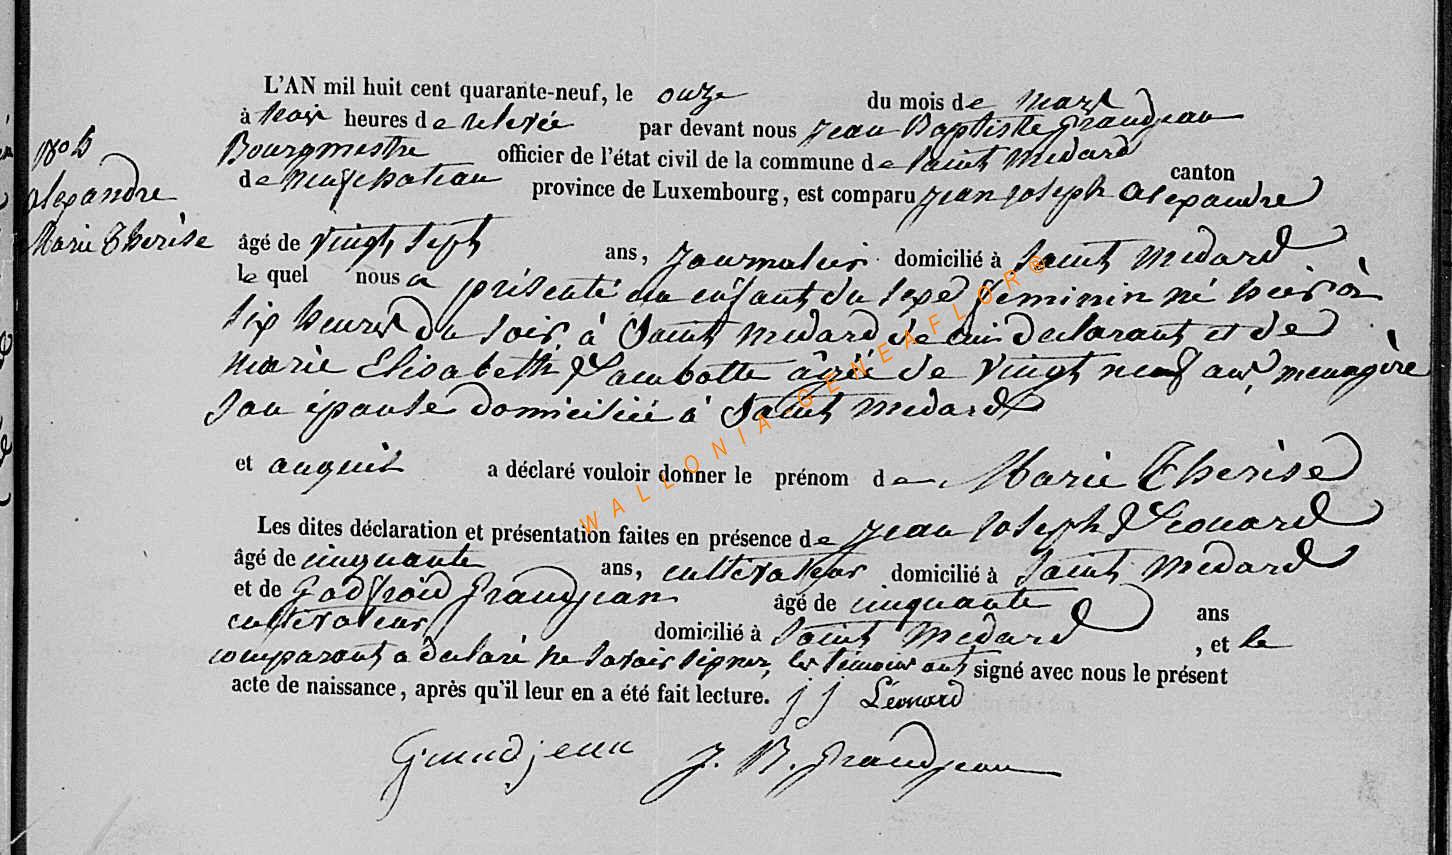 L'AN mil huit cent quarante-neuf, le onze du mois de mars
à trois heures de relevée par devant nous Jean Baptiste Grandjean
Bourgmestre officier de l'état civil de la commune de Saint Médard
canton
de neufchateau province de Luxembourg, est comparu Jean Joseph Alexandre
alexandre
Marie Therèse
âgé de vingt sept ans, journalier domicilié à Saint Médard
le quel nous a présenté un enfant du sexe feminin né hier à
six heures du soir, à Saint Médard de lui déclarant et de
marie Elisabeth Lambotte âgée de vingt neuf ans, menagère
son épouse domiciliée à Saint Médard
et auquel a déclaré vouloir donner le prénom de Marie Therèse
Les dites déclaration et présentation faites en présence de Jean Joseph Léonard
âgé de cinquante ans, cultivateur domicilié à Saint Médard
et de Godfroid Grandjean âgé de cinquante ans
cultivateur domicilié à Saint Médard, et le
comparant a déclaré ne savoir signer, les témoins ont signé avec nous le présent
acte de naissance, après qu'il leur en a été fait lecture. J J Léonard
Grandjean J. B. Grandjean
WALLONIA GENEAFLOR®